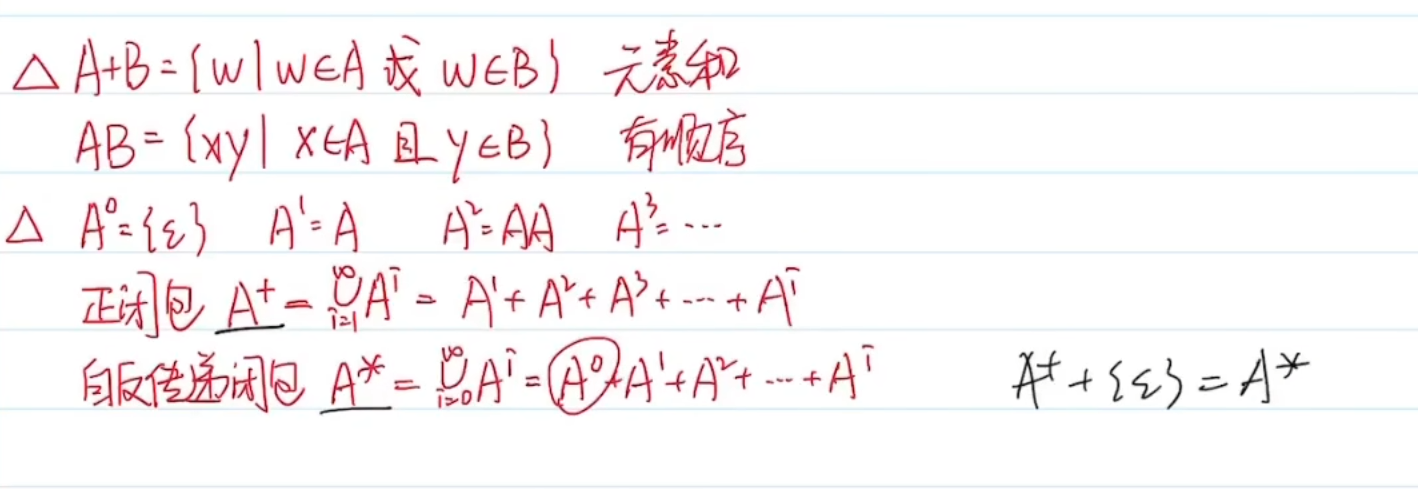 △ A+B={w|w∈A 或 w∈B} 元素和
AB={xy| x∈A 且 y∈B} 有顺序
△ A⁰={ε} A¹=A A²=AA A³=⋯
正闭包 A⁺=⋃ᵢ₌₁^∞ Aⁱ = A¹+A²+A³+⋯+Aⁱ
自反传递闭包 A*=⋃ᵢ₌₀^∞ Aⁱ=A⁰+A¹+A²+⋯+Aⁱ A⁺+{ε}=A*